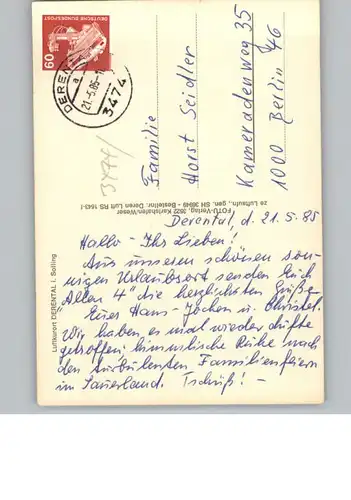 DEUTSCHE BUNDESPOST
60
DERENTAL
a
21.-5.85-1
3474
3474/
Familie
Horst Seidler
Kameradenweg 35
1000 Berlin 46
FOTU-Verlag, 3522 Karlshafen-Weser
zo Luftaufn., gen. SH 0949 - Bestellnr. Deren Luft RS 1643-I
Luftkurort DERENTAL i. Solling
Derental, d. 21.5.85
Hallo - Ihr Lieben!
Aus unserem schönen son-
nigen Urlaubsort senden Euch
"Allen 4" die herzlichsten Grüße
Euer Hans-Jochen u. Christel.
Wir haben es mal wieder dufte
getroffen, himmlische Ruhe nach
den turbulenten Familienfeiern
im Sauerland. Tschüß! -